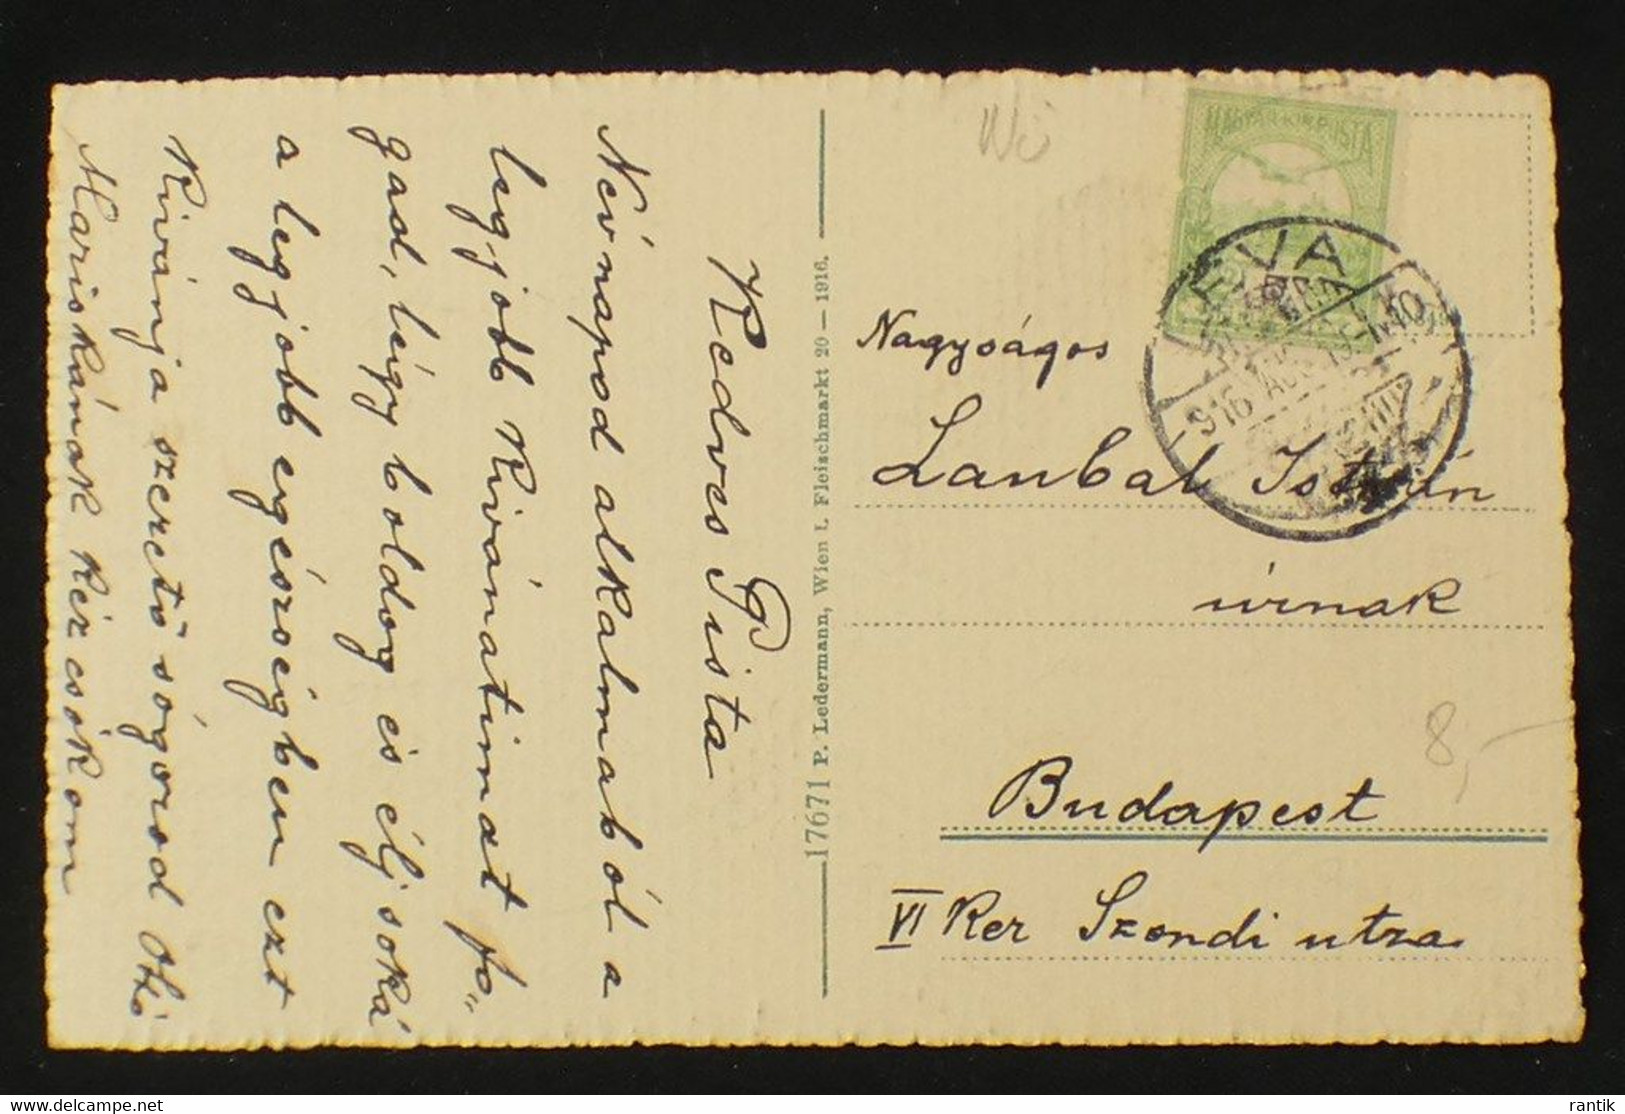 Kedves Pista
Névnapod alkalmaból a
legjobb kivánatimat fo„
gad, légy boldog és élj soká
a legjobb egészségben ezt
kivánja szerető sógorod
Mariskának kézcsókom
17671 P. Ledermann, Wien I. Fleischmarkt 20 — 1916.
MAGYAR KIR. POSTA
916 AUG
Nagyságos
István
úrnak
Budapest
VI Ker Szondi utza
8,-
delcampe.net
rantik